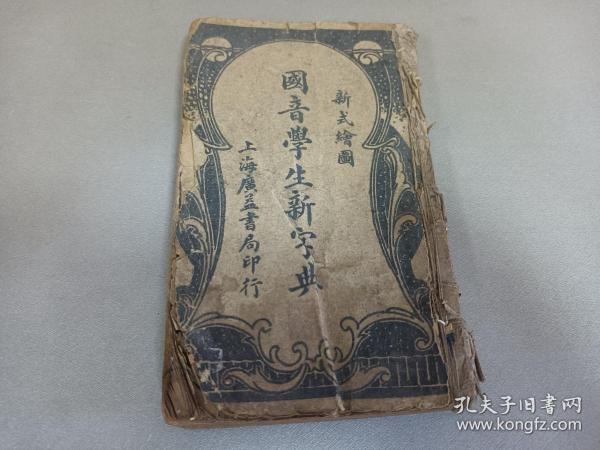 新式繪圖
國音學生新字典
上海廣益書局印行
孔夫子旧書网
www.kongfz.com